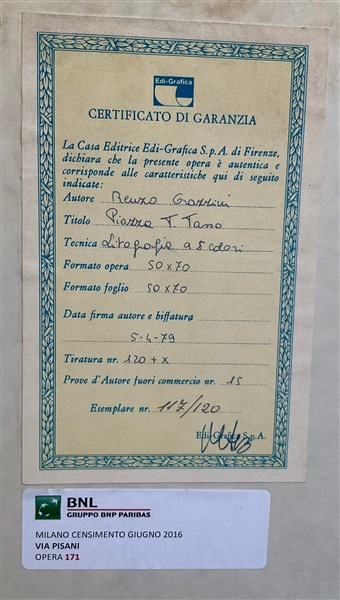 Edi-Grafica
CERTIFICATO DI GARANZIA
La Casa Editrice Edi-Grafica S.p.A. di Firenze,
dichiara che la presente opera è autentica e
corrisponde alle caratteristiche qui di seguito
indicate:
Autore Renzo Grazzini
Titolo Piazza T. Tasso
Tecnica Litografia a 5 colori
Formato opera 50x70
Formato foglio 50x70
Data firma autore e biffatura
5-4-79
Tiratura nr. 120 + X
Prove d'Autore fuori commercio nr. 15
Esemplare nr. 117/120
Edi-Grafica S.p.A.
BNL
GRUPPO BNP PARIBAS
MILANO CENSIMENTO GIUGNO 2016
VIA PISANI
OPERA 171